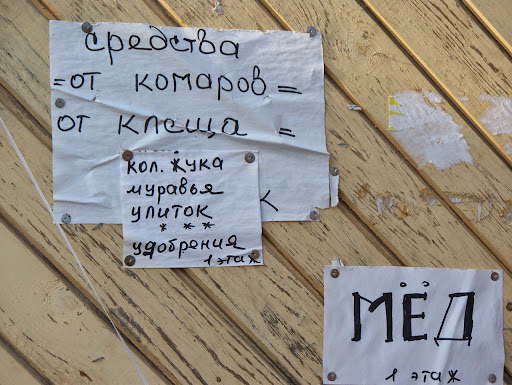 средства
=от комаров=
от клеща =
кол. жука
муравья
улиток
* * *
удобрения
1 этаж
МЁД
1 этаж